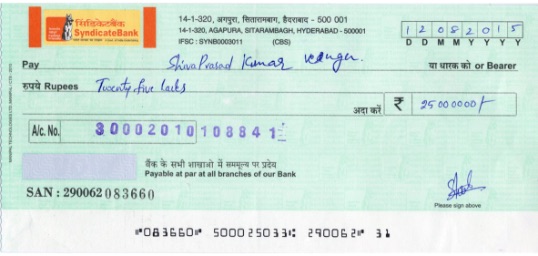 सिंडिकेटबैंक
SyndicateBank
14-1-320, अगपुरा, सितारामबाग, हैदराबाद - 500 001
14-1-320, AGAPURA, SITARAMBAGH, HYDERABAD - 500001
IFSC : SYNB0003011 (CBS)
12082015
D D M M Y Y Y Y
Pay Shiva Prasad Kumar या धारक को or Bearer
रुपये Rupees Twenty five lacks
अदा करें ₹ 25000000/-
A/c. No. 30002010108841
बैंक के सभी शाखाओ में सममूल्य पर प्रदेय
Payable at par at all branches of our Bank
SAN : 290062 083660
Please sign above
⑈083660⑈ 500025033⑆ 290062⑈ 31